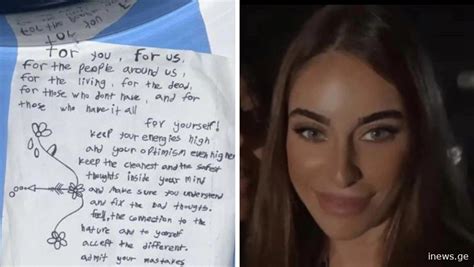 for you, for us,
for the people around us,
for the living, for the dead,
for those who dont have, and for
those who have it all
for yourself!
keep your energies high
and your optimism even higher
keep the cleanest and the safest
thoughts inside your mind
and make sure you understand
and fix the bad thoughts.
feel, the connection to the
nature and to yourself
accept the different.
admit your mastakes
inews.ge